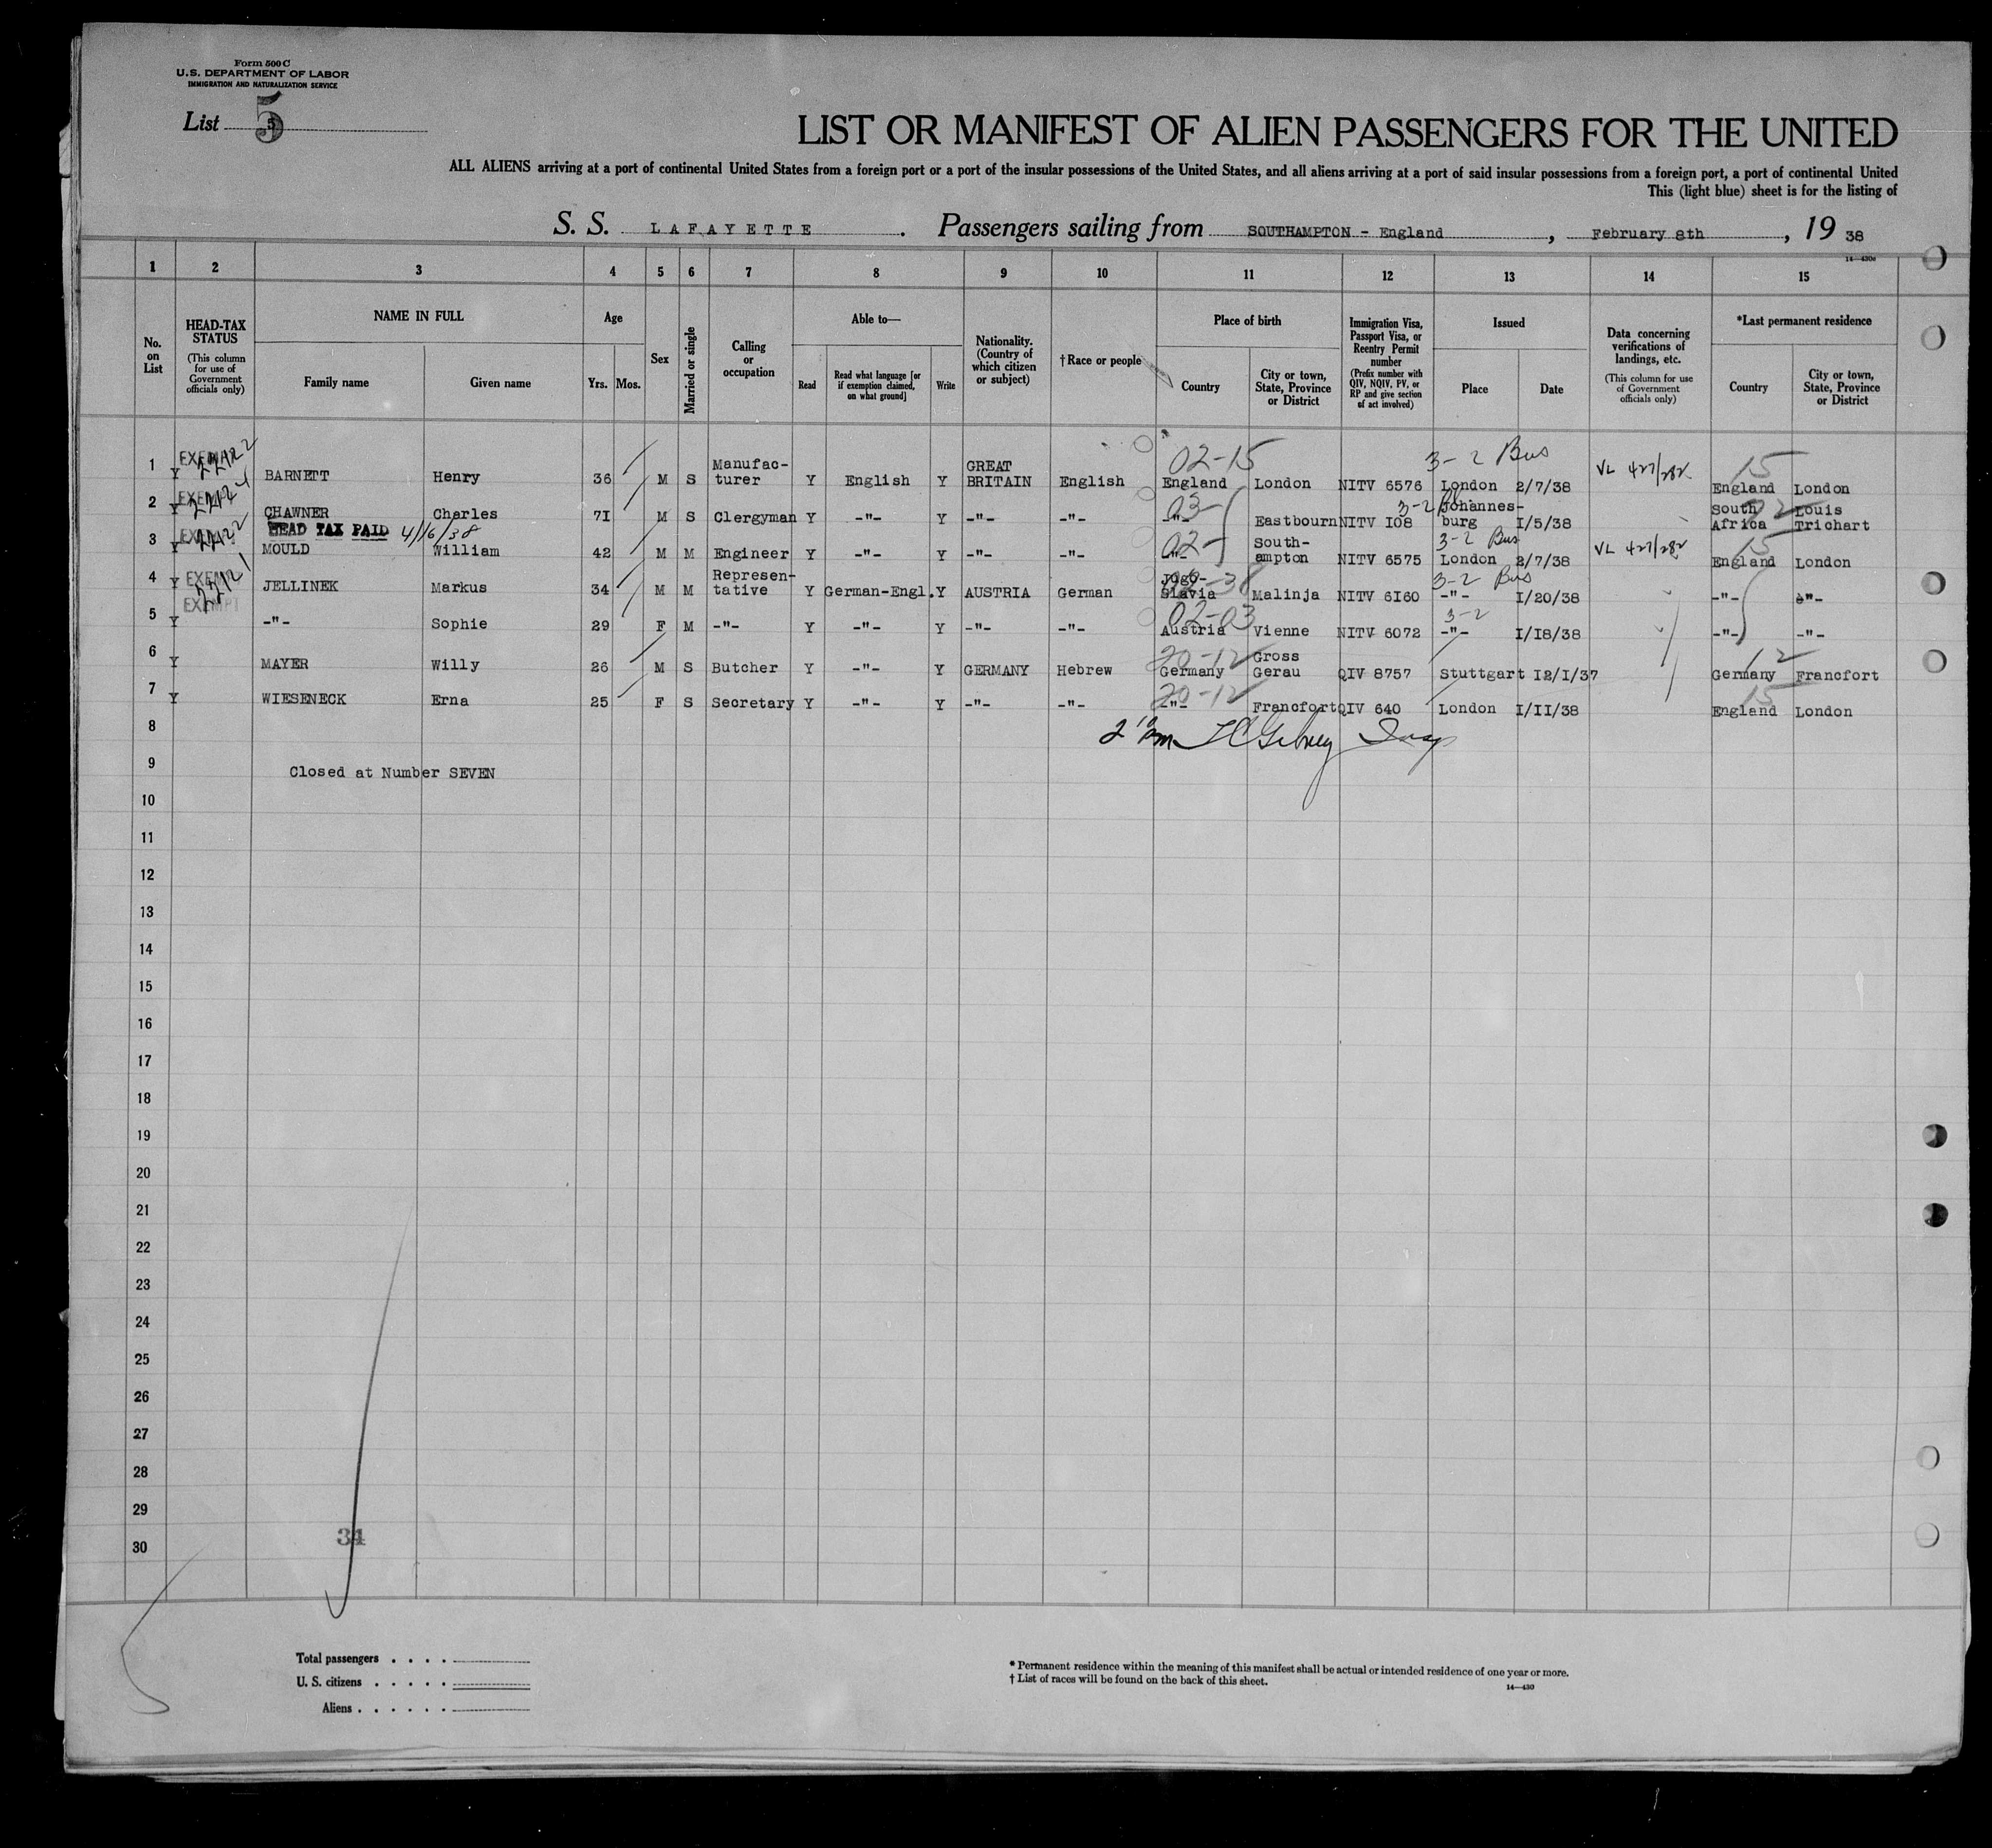 Form 500 C
U.S. DEPARTMENT OF LABOR
IMMIGRATION AND NATURALIZATION SERVICE
List 5 5
LIST OR MANIFEST OF ALIEN PASSENGERS FOR THE UNITED
ALL ALIENS arriving at a port of continental United States from a foreign port or a port of the insular possessions of the United States, and all aliens arriving at a port of said insular possessions from a foreign port, a port of continental United
This (light blue) sheet is for the listing of
S. S. LAFAYETTE. Passengers sailing from SOUTHAMPTON - England, February 8th, 19 38
1 2 3 4 5 6 7 8 9 10 11 12 13 14 15
No. on List
HEAD-TAX STATUS (This column for use of Government officials only)
NAME IN FULL Family name Given name
Age Yrs. Mos.
Sex
Married or single
Calling or occupation
Able to— Read Read what language [or if exemption claimed, on what ground] Write
Nationality. (Country of which citizen or subject)
† Race or people
Place of birth Country City or town, State, Province or District
Immigration Visa, Passport Visa, or Reentry Permit number (Prefix number with QIV, NQIV, PV, or RP and give section of act involved)
Issued Place Date
Data concerning verifications of landings, etc. (This column for use of Government officials only)
*Last permanent residence Country City or town, State, Province or District
02-15 3-2 Bus 15
1 Y EXEMPT BARNETT Henry 36 M S Manufac-turer Y English Y GREAT BRITAIN English England London NITV 6576 London 2/7/38 VL 427/282 England London
03- 3-2
2 Y EXEMPT CHAWNER Charles 7I M S Clergyman Y -"- Y -"- -"- -"- Eastbourn NITV I08 Johannes-burg I/5/38 South Africa Louis Trichart
HEAD TAX PAID 4/16/38
02- 3-2 Bus 15
3 Y EXEMPT MOULD William 42 M M Engineer Y -"- Y -"- -"- -"- South-ampton NITV 6575 London 2/7/38 VL 427/282 England London
3-2 Bus
4 Y EXEMPT JELLINEK Markus 34 M M Represen-tative Y German-Engl. Y AUSTRIA German Jugo-Slavia Malinja NITV 6I60 -"- I/20/38 -"- -"-
EXEMPT 02-03 3-2
5 Y -"- Sophie 29 F M -"- Y -"- Y -"- -"- Austria Vienne NITV 6072 -"- I/I8/38 -"- -"-
20-12 12
6 Y MAYER Willy 26 M S Butcher Y -"- Y GERMANY Hebrew Germany Gross Gerau QIV 8757 Stuttgart I2/I/37 Germany Francfort
20-12 15
7 Y WIESENECK Erna 25 F S Secretary Y -"- Y -"- -"- -"- Francfort QIV 640 London I/II/38 England London
8
9 Closed at Number SEVEN
10
11
12
13
14
15
16
17
18
19
20
21
22
23
24
25
26
27
28
29
34
30
Total passengers . . . .
U. S. citizens . . . . .
Aliens . . . . . .
* Permanent residence within the meaning of this manifest shall be actual or intended residence of one year or more.
† List of races will be found on the back of this sheet.
14—430